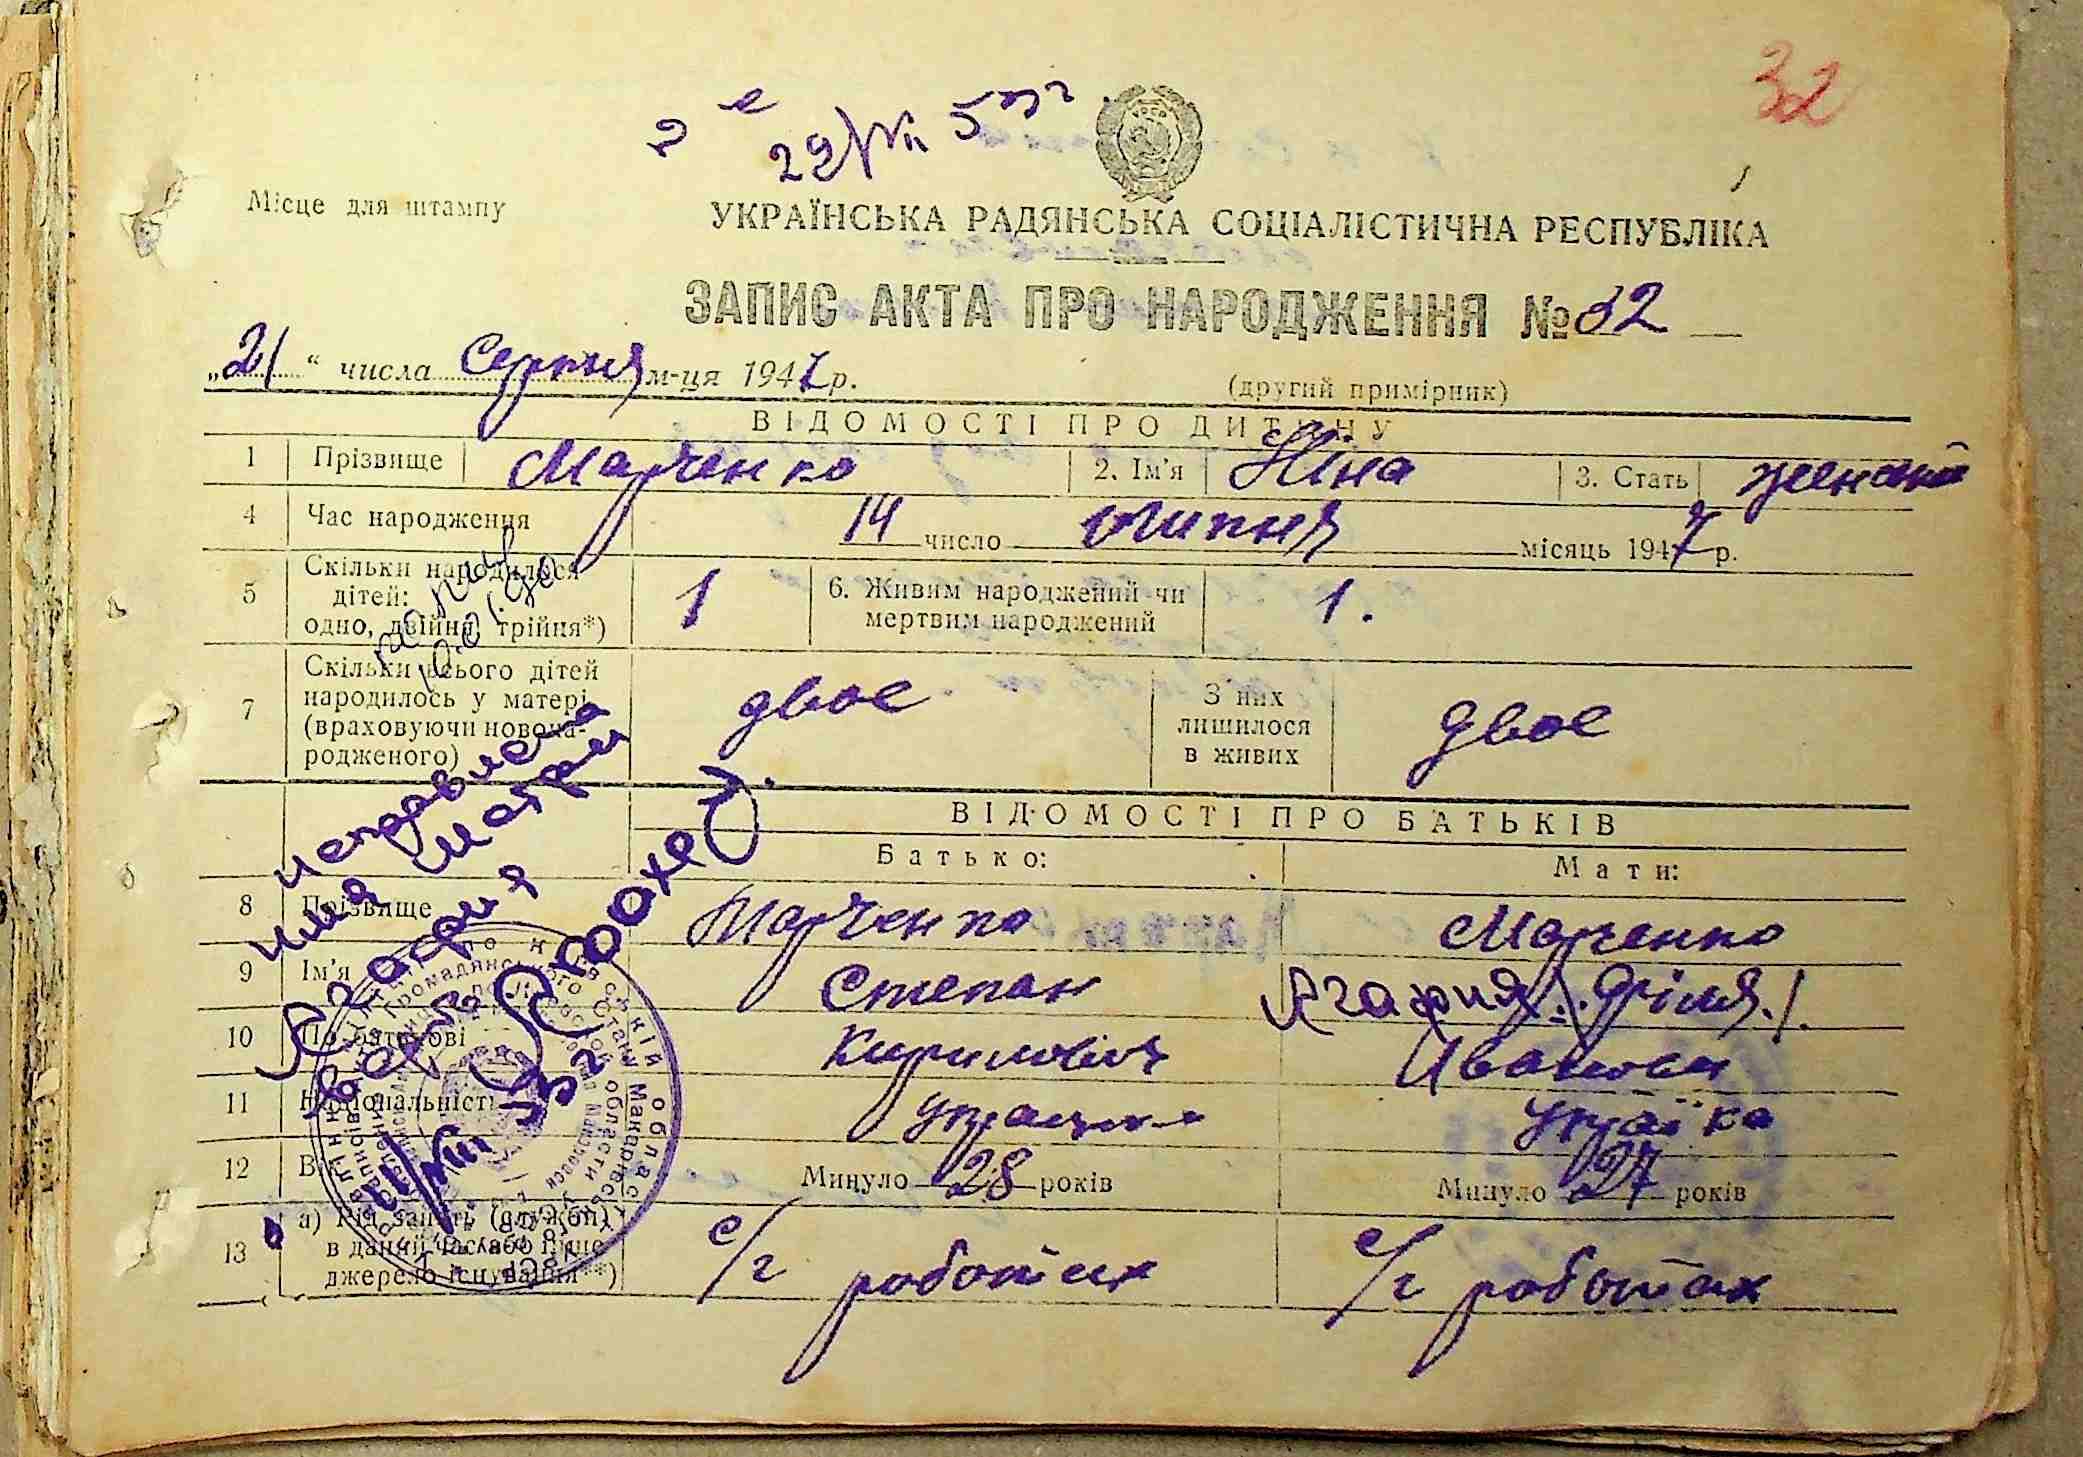 32
2 е
29/VII 57 г.
Місце для штампу
УКРАЇНСЬКА РАДЯНСЬКА СОЦІАЛІСТИЧНА РЕСПУБЛІКА
ЗАПИС АКТА ПРО НАРОДЖЕННЯ № 32
„21“ числа Серпня м-ця 1947 р.
(другий примірник)
ВІДОМОСТІ ПРО ДИТИНУ
1 Прізвище Марченко 2. Ім'я Ніна 3. Стать
4 Час народження 14 число липня місяць 1947 р.
5 Скільки народилося дітей: одно, двійня, трійня*) 1 6. Живим народжений чи мертвим народжений 1.
7 Скільки всього дітей народилось у матері (враховуючи новонародженого) двое З них лишилося в живих двое
ВІДОМОСТІ ПРО БАТЬКІВ
Батько: Мати:
8 Прізвище Марченко Марченко
9 Ім'я Степан Агафия
10 По батькові Кирилович Ивановна
11 Національність українка
12 Вік Минуло 28 років Минуло 27 років
13 а) Рід занять (служби) в даний час або інше джерело існування**) с/г роботах с/г роботах
исправлено
имя матери
Агафия